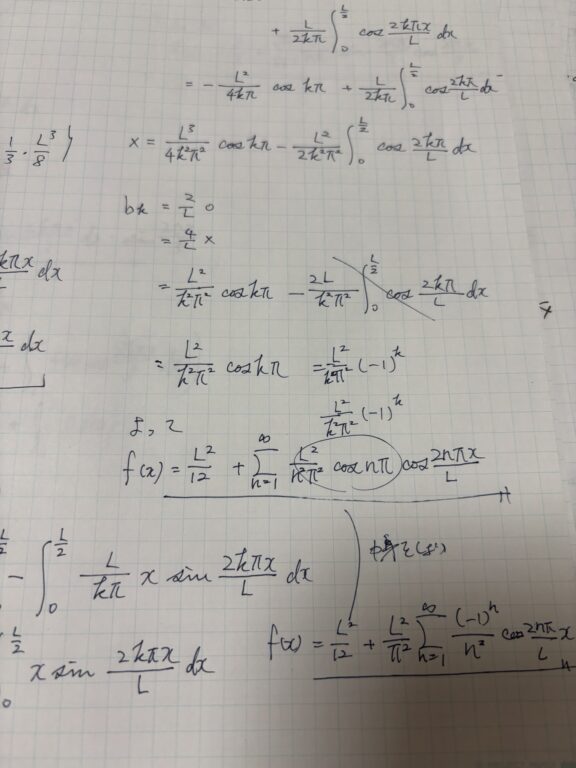 + L/2kπ ∫₀^{L/2} cos 2kπx/L dx
= - L²/4kπ cos kπ + L/2kπ ∫₀^{L/2} cos 2kπ/L dx
1/3 · L³/8 }
x = L³/4k²π² cos kπ - L²/2k²π² ∫₀^{L/2} cos 2kπ/L dx
bk = 2/L 0
= 4/L x
kπx dx
= L²/k²π² cos kπ - 2L/k²π² ∫₀^{L/2} cos 2kπ/L dx
x dx
= L²/k²π² cos kπ = L²/k²π² (-1)^k
L²/k²π² (-1)^k
よって
f(x) = L²/12 + Σ_{n=1}^{∞} L²/n²π² cos nπ cos 2nπx/L
- ∫₀^{L/2} L/kπ x sin 2kπx/L dx
x sin 2kπx/L dx
f(x) = L²/12 + L²/π² Σ_{n=1}^{∞} (-1)^n/n² cos 2nπ/L x